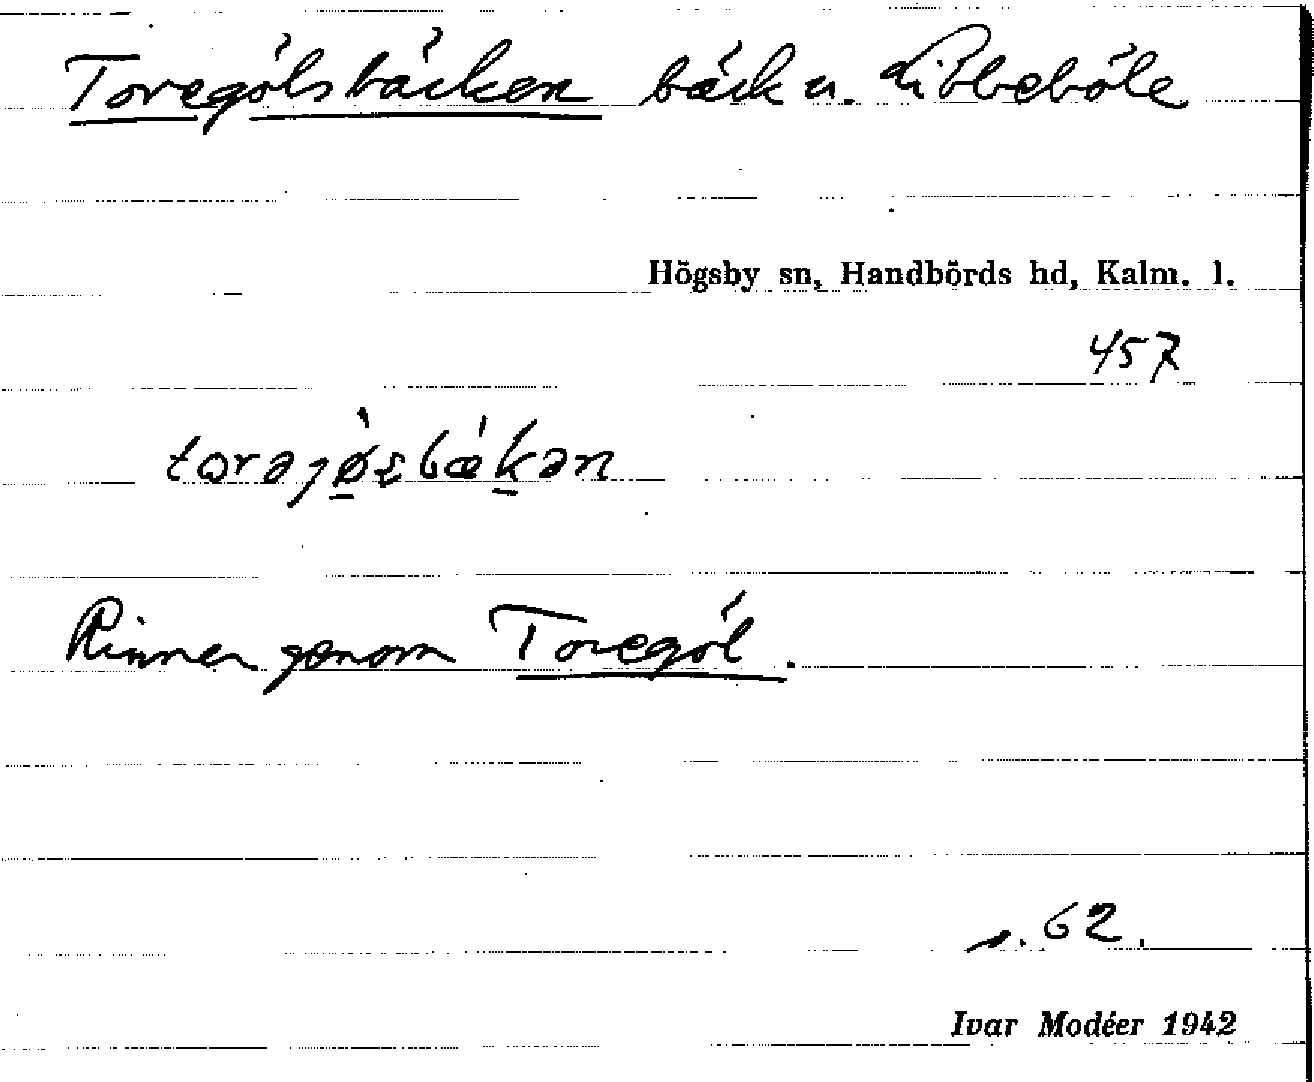 Toregölsbäcken bäck u. Libbeböle
Högsby sn, Handbörds hd, Kalm. l.
457
Rinner genom Toregöl.
s. 62.
Ivar Modéer 1942